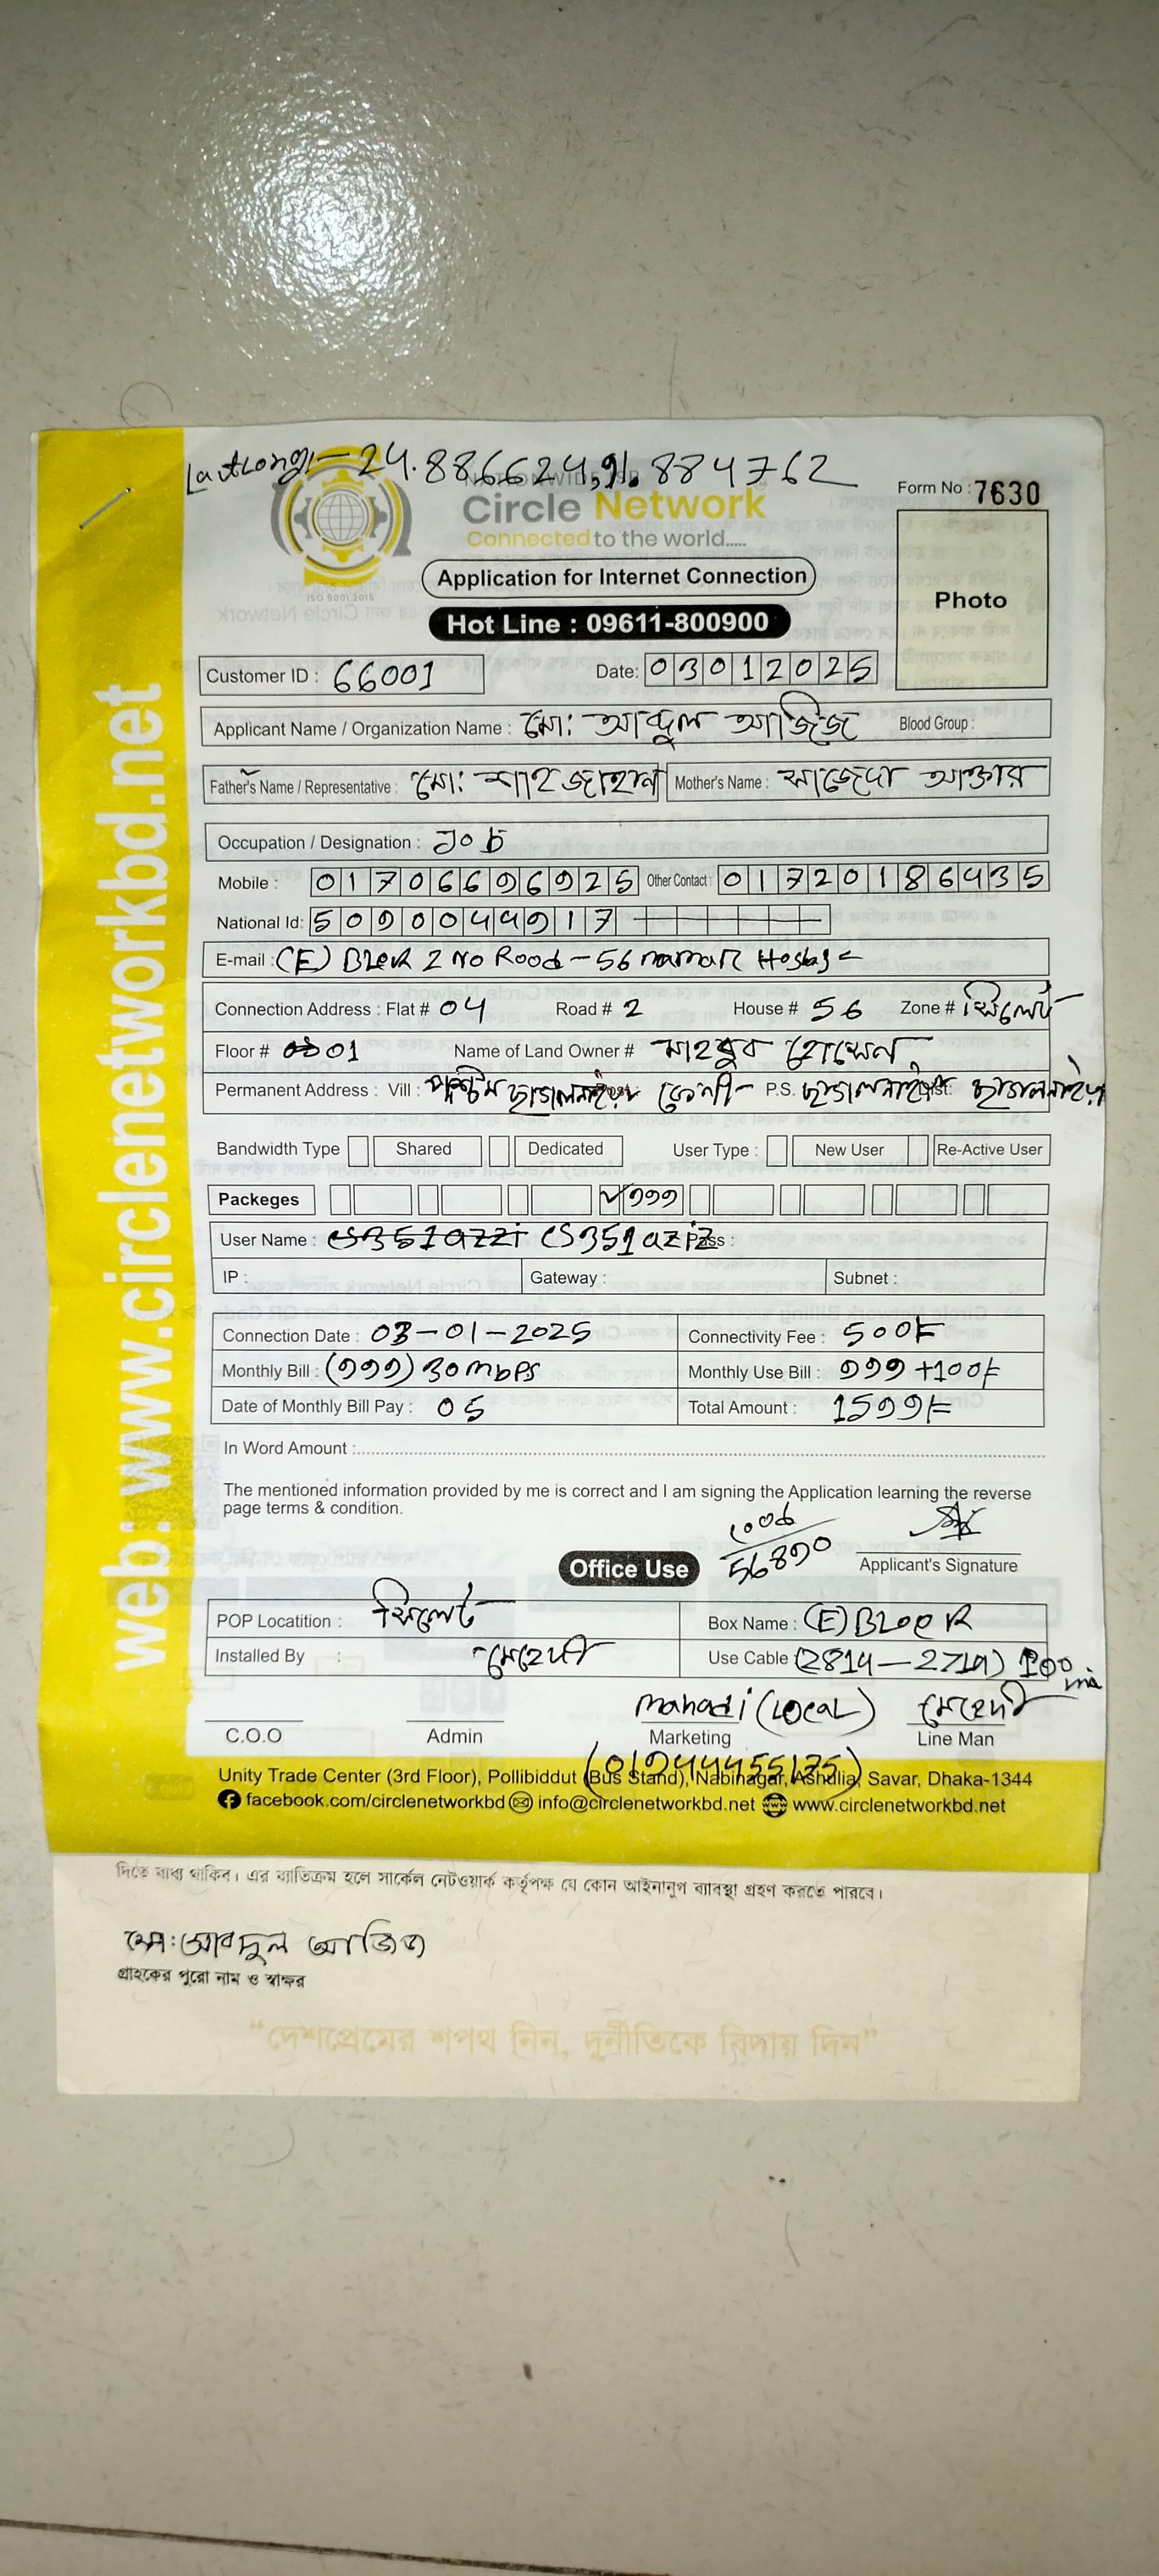 Lat Long:- 24.886624, 91.884762
Form No : 7630
Circle Network
Connected to the world.....
ISO 9001:2015
Application for Internet Connection
Photo
Hot Line : 09611-800900
Customer ID : 66001 Date: 03012025
Applicant Name / Organization Name : মো: আব্দুল আজিজ Blood Group :
Father's Name / Representative : মো: শাহজাহান Mother's Name : সাজেদা আক্তার
Occupation / Designation : Job
Mobile : 01706696925 Other Contact : 01720186435
National Id: 5090044917
E-mail : (E) Block 2 No Rood - 56 namar
Connection Address : Flat # 04 Road # 2 House # 56 Zone # সিলেট
Floor # 01 Name of Land Owner # মাহবুব হোসেন
Permanent Address : Vill : পশ্চিম ছাগলনাইয়া ফেনী P.S. ছাগলনাইয়া Dist: ছাগলনাইয়া
Bandwidth Type Shared Dedicated User Type : New User Re-Active User
Packeges 999
User Name : cs351azzi cs351aziz Pass :
IP : Gateway : Subnet :
Connection Date : 03-01-2025 Connectivity Fee : 500/=
Monthly Bill : (999) 30mbps Monthly Use Bill : 999 +100/=
Date of Monthly Bill Pay : 05 Total Amount : 1599/=
In Word Amount :
The mentioned information provided by me is correct and I am signing the Application learning the reverse
page terms & condition.
56890
Office Use Applicant's Signature
POP Locatition : সিলেট Box Name : (E) Block
Installed By : মেহেদী Use Cable (2814-2714) 100 mi
Mahadi (Local) মেহেদী
C.O.O Admin Marketing Line Man
(01944455175)
Unity Trade Center (3rd Floor), Pollibiddut (Bus Stand), Nabinagar, Ashulia, Savar, Dhaka-1344
facebook.com/circlenetworkbd info@circlenetworkbd.net www.circlenetworkbd.net
web: www.circlenetworkbd.net
দিতে বাধ্য থাকিব। এর ব্যতিক্রম হলে সার্কেল নেটওয়ার্ক কর্তৃপক্ষ যে কোন আইনানুগ ব্যাবস্থা গ্রহণ করতে পারবে।
মো: আবদুল আজিজ
গ্রাহকের পুরো নাম ও স্বাক্ষর
“দেশপ্রেমের শপথ নিন, দুর্নীতিকে বিদায় দিন”